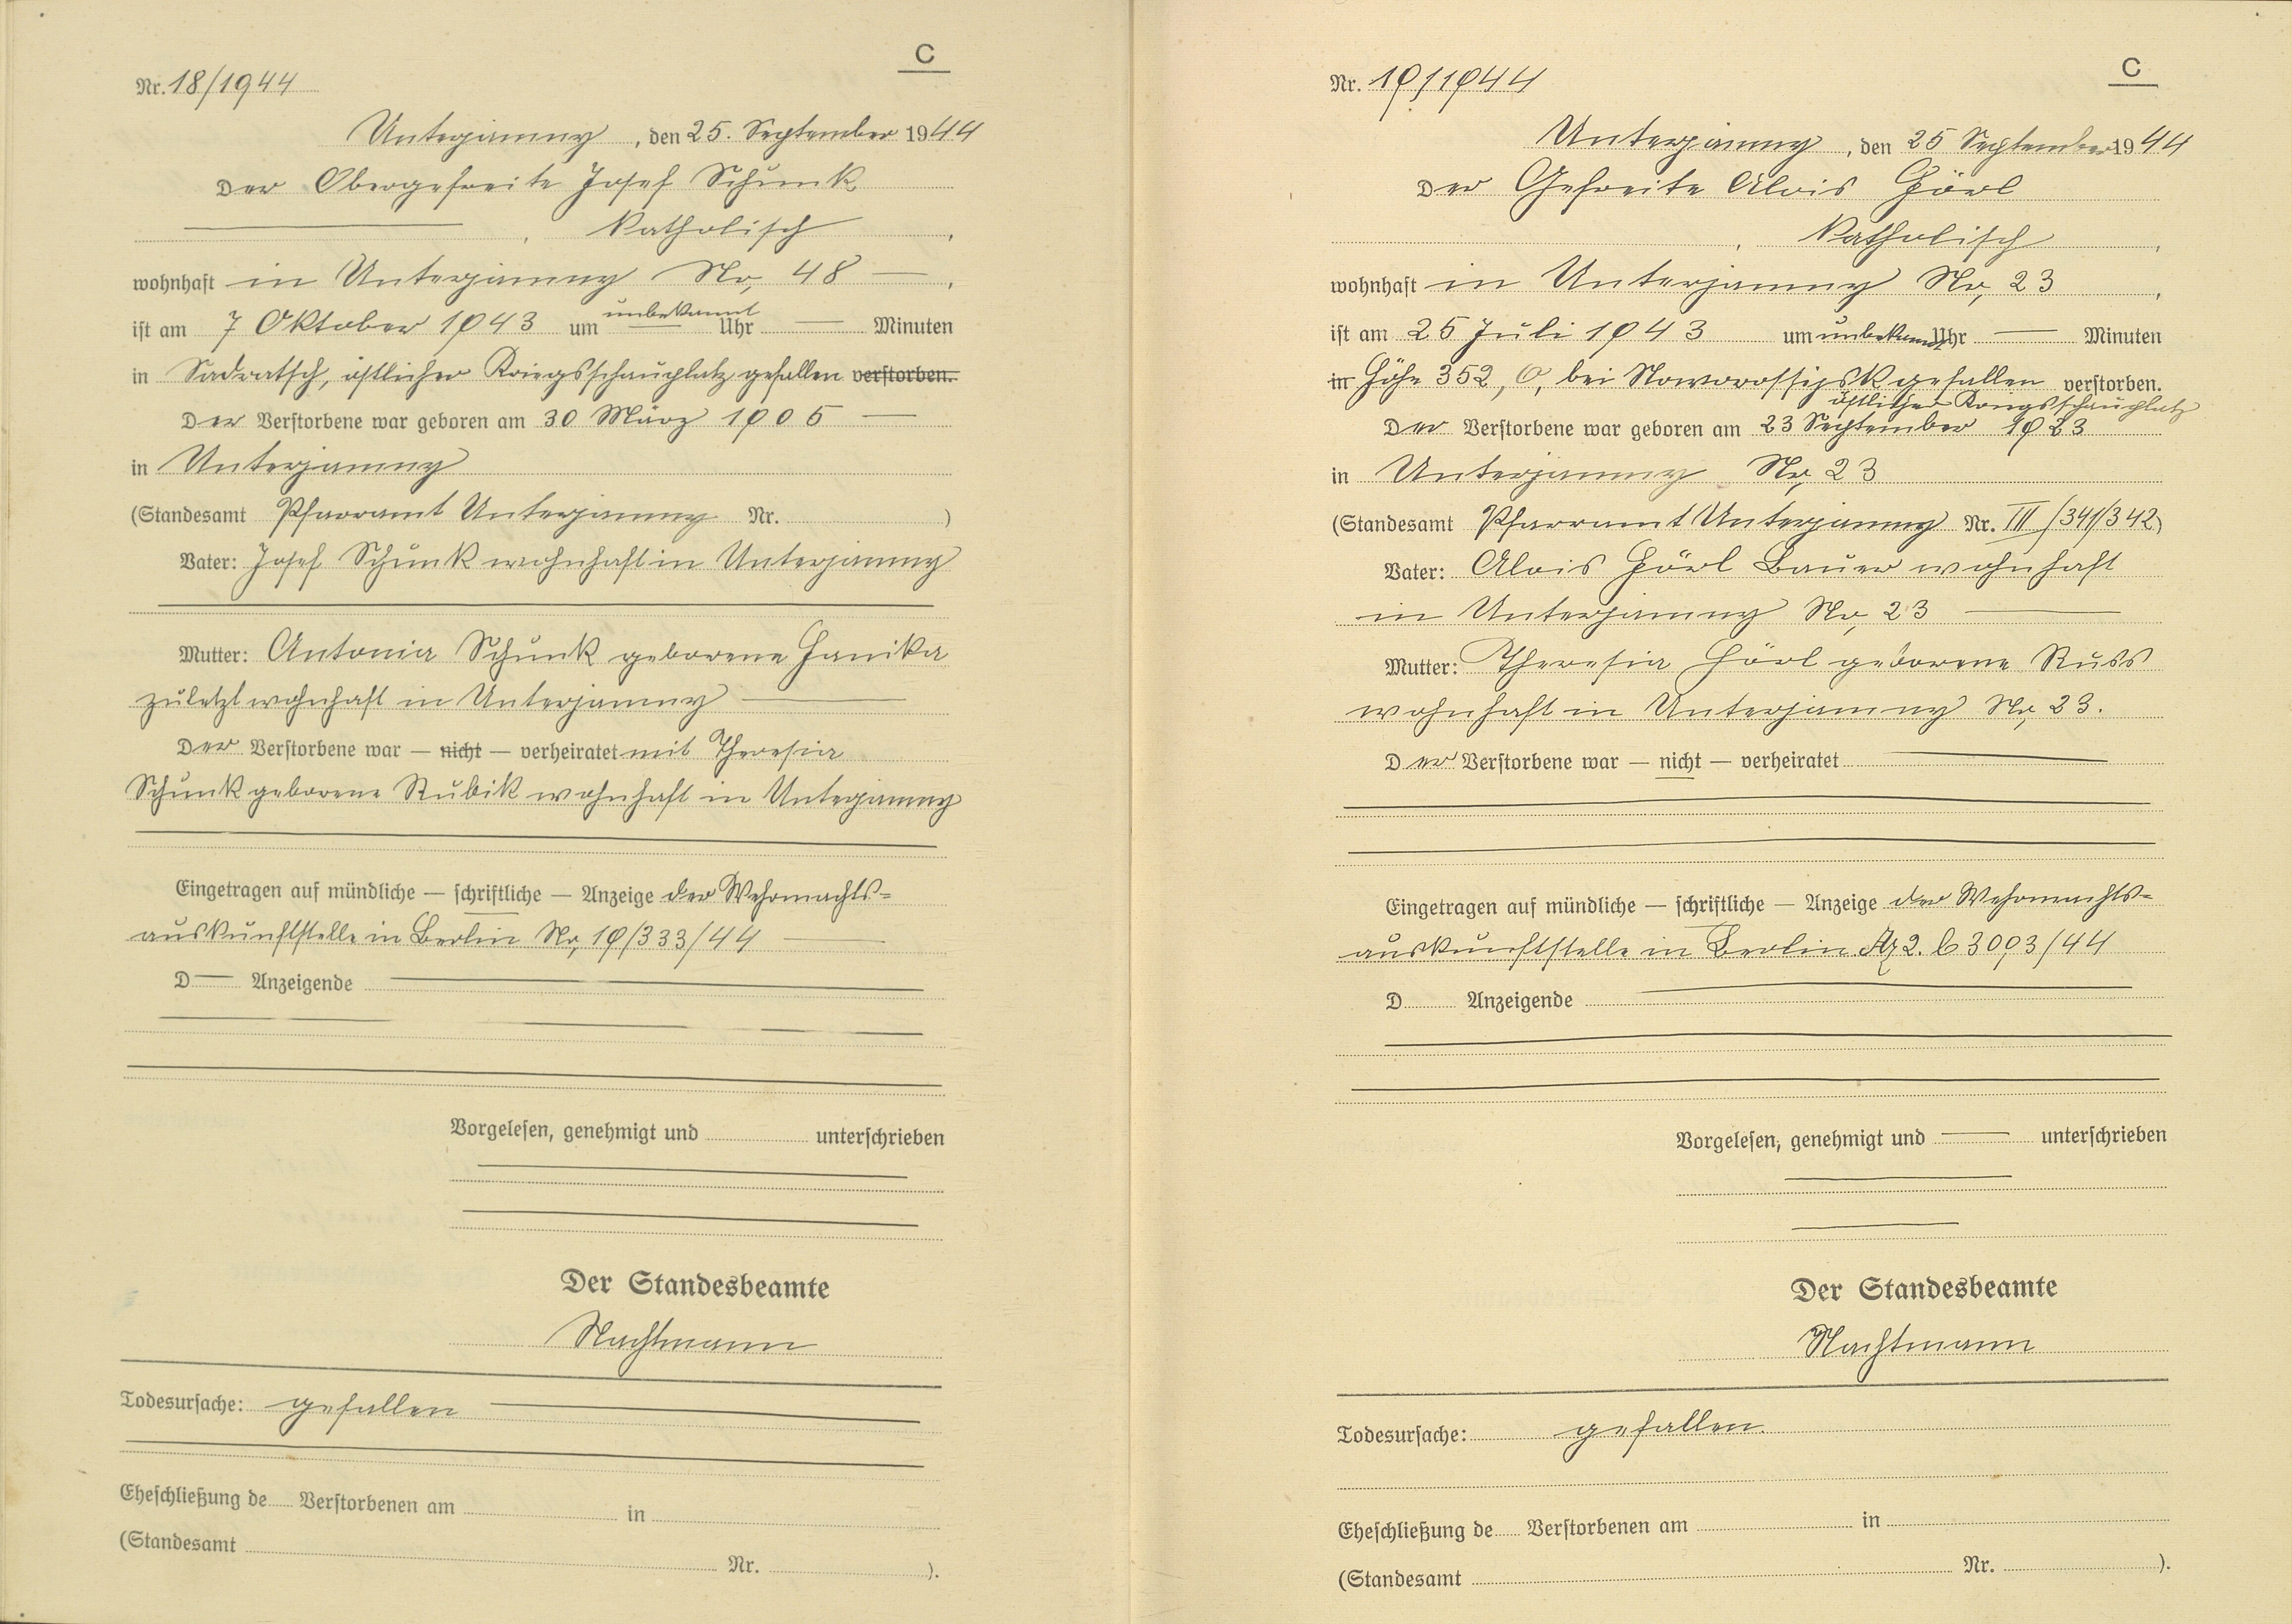 C
Nr. 18/1944
Unterjamny, den 25. September 1944
Der Obergefreite Josef Schunk
katholisch,
wohnhaft in Unterjamny Nr, 48,
ist am 7 Oktober 1943 um unbekannt Uhr Minuten
in Sadratsch, östlicher Kriegsschauplatz gefallen verstorben.
Der Verstorbene war geboren am 30 März 1905
in Unterjamny
(Standesamt Pfarramt Unterjamny Nr. )
Vater: Josef Schunk wohnhaft in Unterjamny
Mutter: Antonia Schunk geborene Hanika
zuletzt wohnhaft in Unterjamny
Der Verstorbene war — nicht — verheiratet mit Theresia
Schunk geborene Rubik wohnhaft in Unterjamny
Eingetragen auf mündliche — schriftliche — Anzeige der Wehrmachts=
auskunftstelle in Berlin Nr, 19/333/44
D Anzeigende
Vorgelesen, genehmigt und unterschrieben
Der Standesbeamte
Nachtmann
Todesursache: gefallen
Eheschließung de Verstorbenen am in
(Standesamt Nr. ).
C
Nr. 19/1944
Unterjamny, den 25 September 1944
Der Gefreite Alois Hörl
, katholisch,
wohnhaft in Unterjamny Nr, 23,
ist am 25 Juli 1943 um unbekannt Uhr Minuten
in Höhe 352, O, bei Noworossijsk gefallen verstorben.
östlicher Kriegsschauplatz
Der Verstorbene war geboren am 23 September 1923
in Unterjamny Nr, 23
(Standesamt Pfarramt Unterjamny Nr. III/341/342)
Vater: Alois Hörl Bauer wohnhaft
in Unterjamny Nr, 23
Mutter: Theresia Hörl geborene Russ
wohnhaft in Unterjamny Nr, 23.
Der Verstorbene war — nicht — verheiratet
Eingetragen auf mündliche — schriftliche — Anzeige der Wehrmachts=
auskunftstelle in Berlin Az 2. b 3093/44
D Anzeigende
Vorgelesen, genehmigt und unterschrieben
Der Standesbeamte
Nachtmann
Todesursache: gefallen.
Eheschließung de Verstorbenen am in
(Standesamt Nr. ).